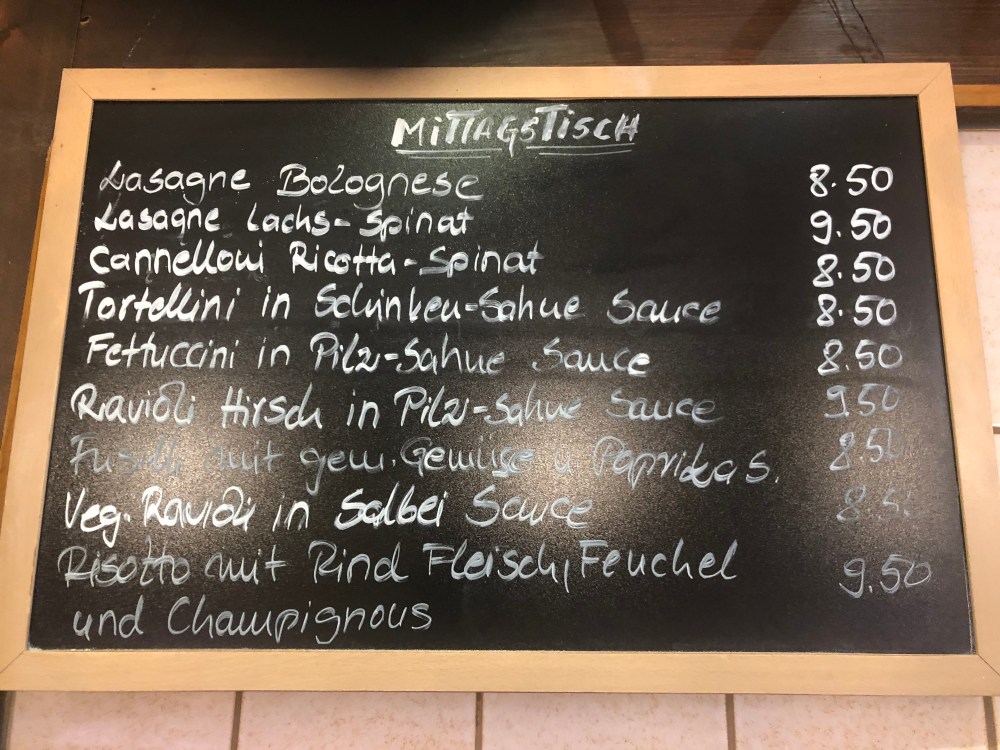 MITTAGSTISCH
Lasagne Bolognese 8.50
Lasagne Lachs-Spinat 9.50
Cannelloni Ricotta-Spinat 8.50
Tortellini in Schinken-Sahne Sauce 8.50
Fettuccini in Pilz-Sahne Sauce 8.50
Ravioli Hirsch in Pilz-Sahne Sauce 9.50
Fusilli mit gem. Gemüse u Paprika S. 8.50
Veg. Ravioli in Salbei Sauce 8.50
Risotto mit Rind Fleisch, Fenchel 9.50
und Champignons